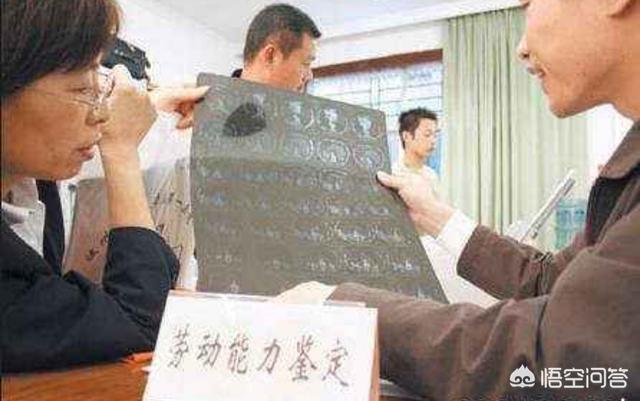 劳动能力鉴定
悟空问答